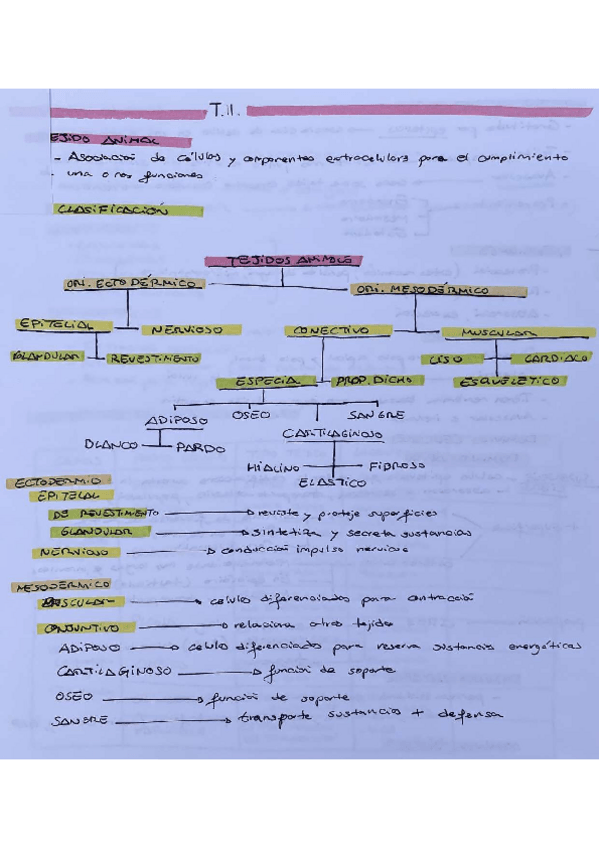 T.11.
EJIDO ANIMAL
- Asociación de células y componentes extracelulars para el cumplimiento
- una o nas funciones
CLASIFICACIÓN
TEJIDOS ANIMALE
ORI. ECTODÉRMICO
ORI. MESODÉRMICO
EPITELIAL
NERVIOSO
CONECTIVO
MUSCULAR
GLANDULAR
REVESTIMIENTO
LISO
CARDIACO
ESPECIAL
PROP. DICHO
ESQUELÉTICO
ADIPOSO
OSEO
SANGRE
CARTILAGINOSO
BLANCO
PARDO
HIALINO
FIBROSO
ELASTICO
ECTODERMIO
EPITELIAL
DE REVESTIMIENTO → reviste y proteje superficies
GLANDULAR → sintetiza y secreta sustancias
NERVIOSO → conducción impulso nervioso
MESODERMICO
MUSCULAR → celula diferenciados para contracción
CONJUNTIVO → relaciona otros tejidos
ADIPOSO → celula diferenciado para reserva sustancias energéticas
CARTILAGINOSO → función de soporte
OSEO → función de soporte
SANGRE → transporte sustancias + defensa